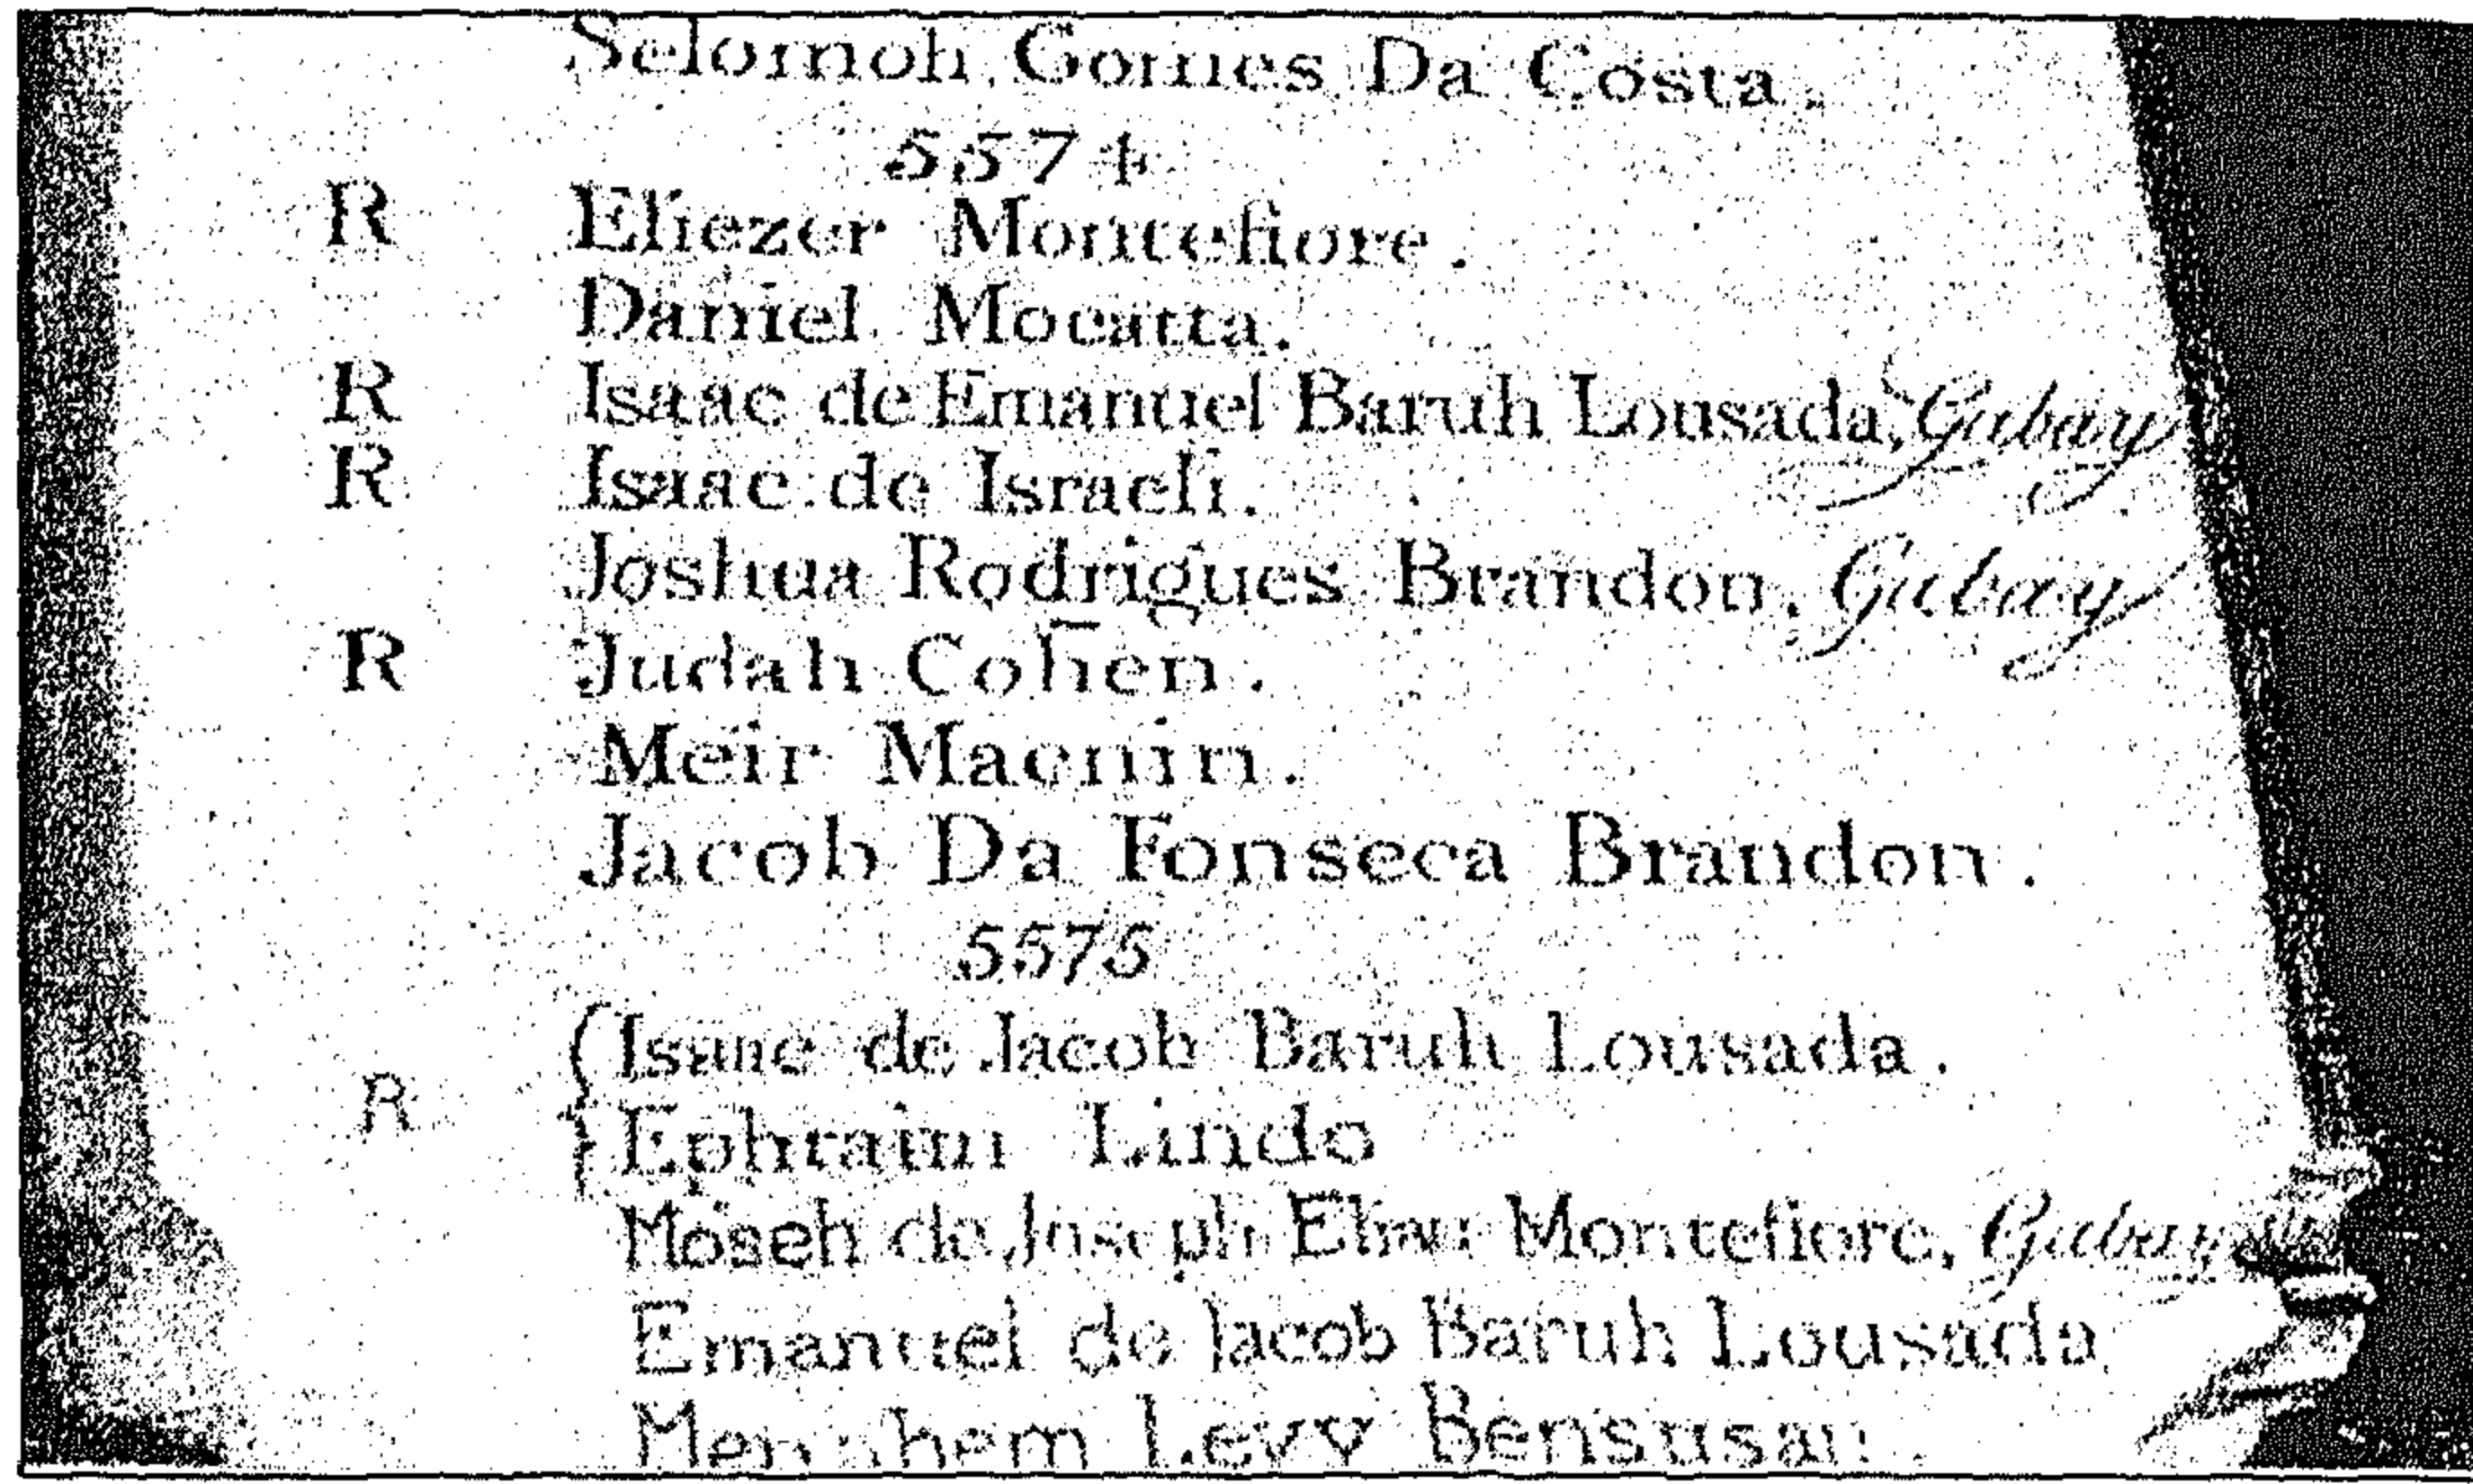 Selomoh Gomes Da Costa.
5574
R Eliezer Montefiore.
Daniel Mocatta.
R Isaac de Emanuel Baruh Lousada, Gabay
R Isaac de Israeli.
Joshua Rodrigues Brandon, Gabay
R Judah Cohen.
Meir Macnin.
Jacob Da Fonseca Brandon.
5575
Isaac de Jacob Baruh Lousada.
R Ephraim Lindo
Moseh de Joseph Eliau Montefiore, Gabay
Emanuel de Jacob Baruh Lousada
Menahem Levy Bensusan.